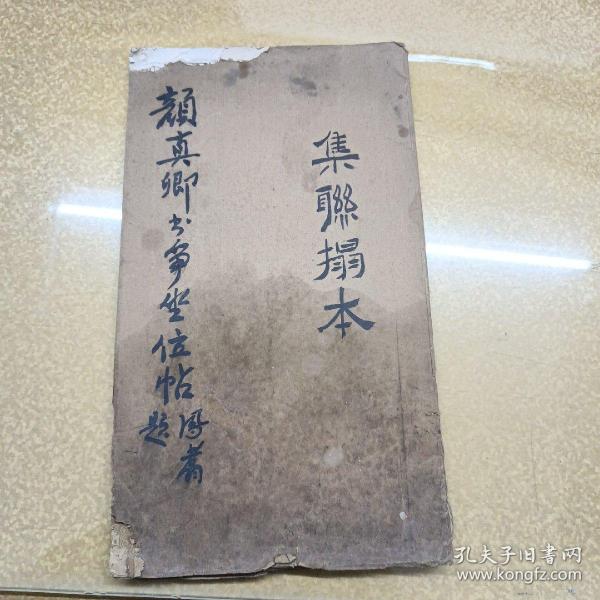 集聯搨本
顏真卿书爭坐位帖
題
孔夫子旧書网
www.kongfz.com